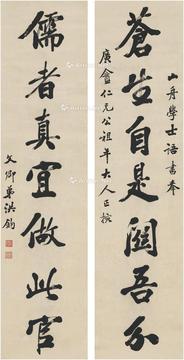 蒼生自是關吾分
山舟學士語書奉
廣盦仁兄公祖年大人正捥
儒者真宜做此官
文卿弟洪鈞